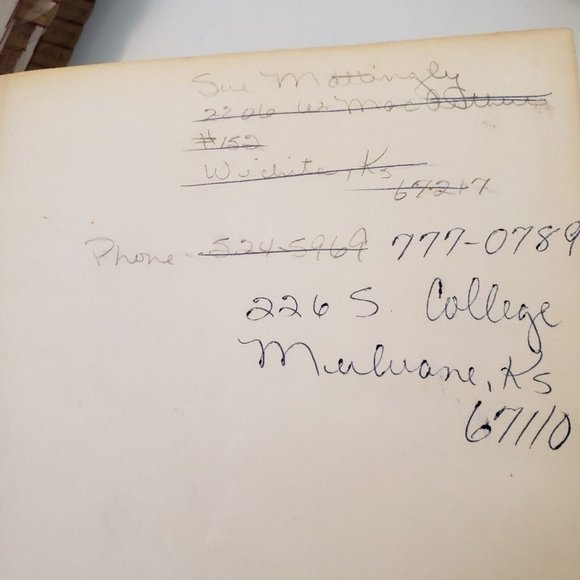 Sue Mattingly
2206 W. MacArthur
#152
Wichita, Ks
67217
Phone - 524-5969 777-0789
226 S. College
Mulvane, Ks
67110